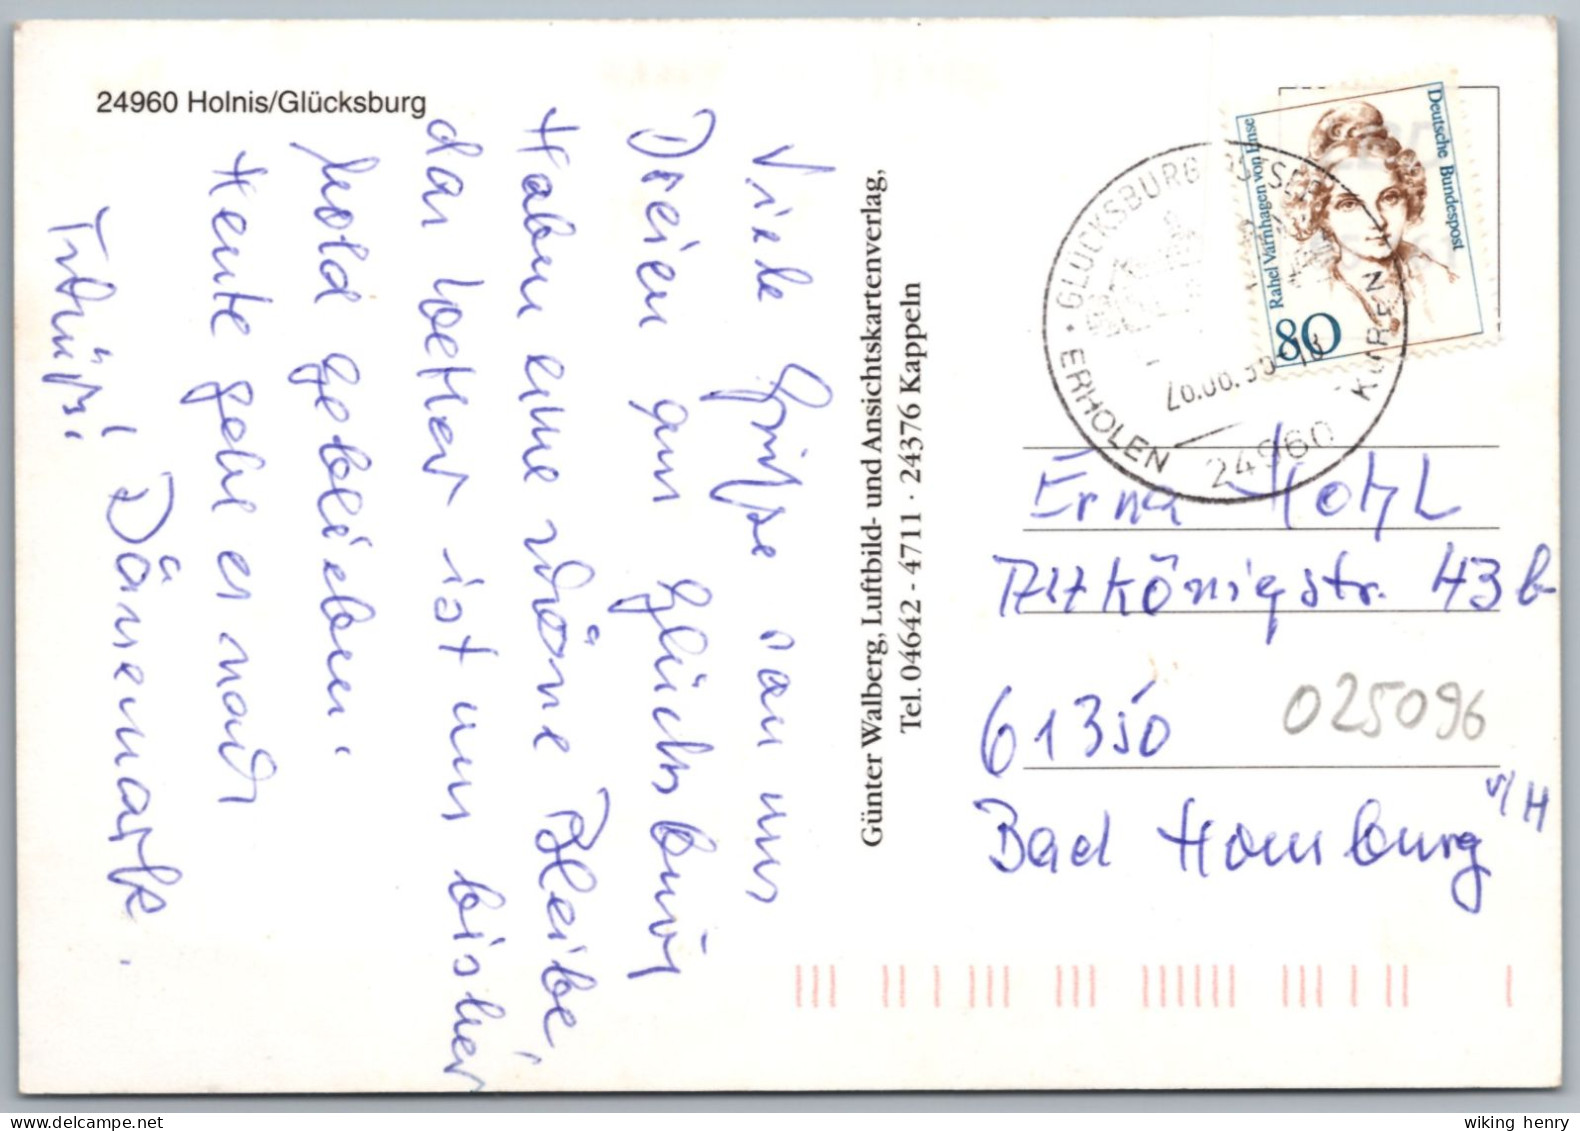 24960 Holnis/Glücksburg
Viele Grüße von uns
Dreien aus Glücksburg
Haben eine schöne Bleibe,
das Wetter ist uns bisher
hold geblieben.
Heute geht es nach
Dänemark.
Tschüß!
Günter Walberg, Luftbild- und Ansichtskartenverlag,
Tel. 04642 - 4711 · 24376 Kappeln
Deutsche Bundespost
Rahel Varnhagen von Ense
80
GLÜCKSBURG OSTSEE
ERHOLEN
KUREN
24960
Erna Hotzl
Altkönigstr. 43b
61350
025096
v/H
Bad Homburg
wiking henry